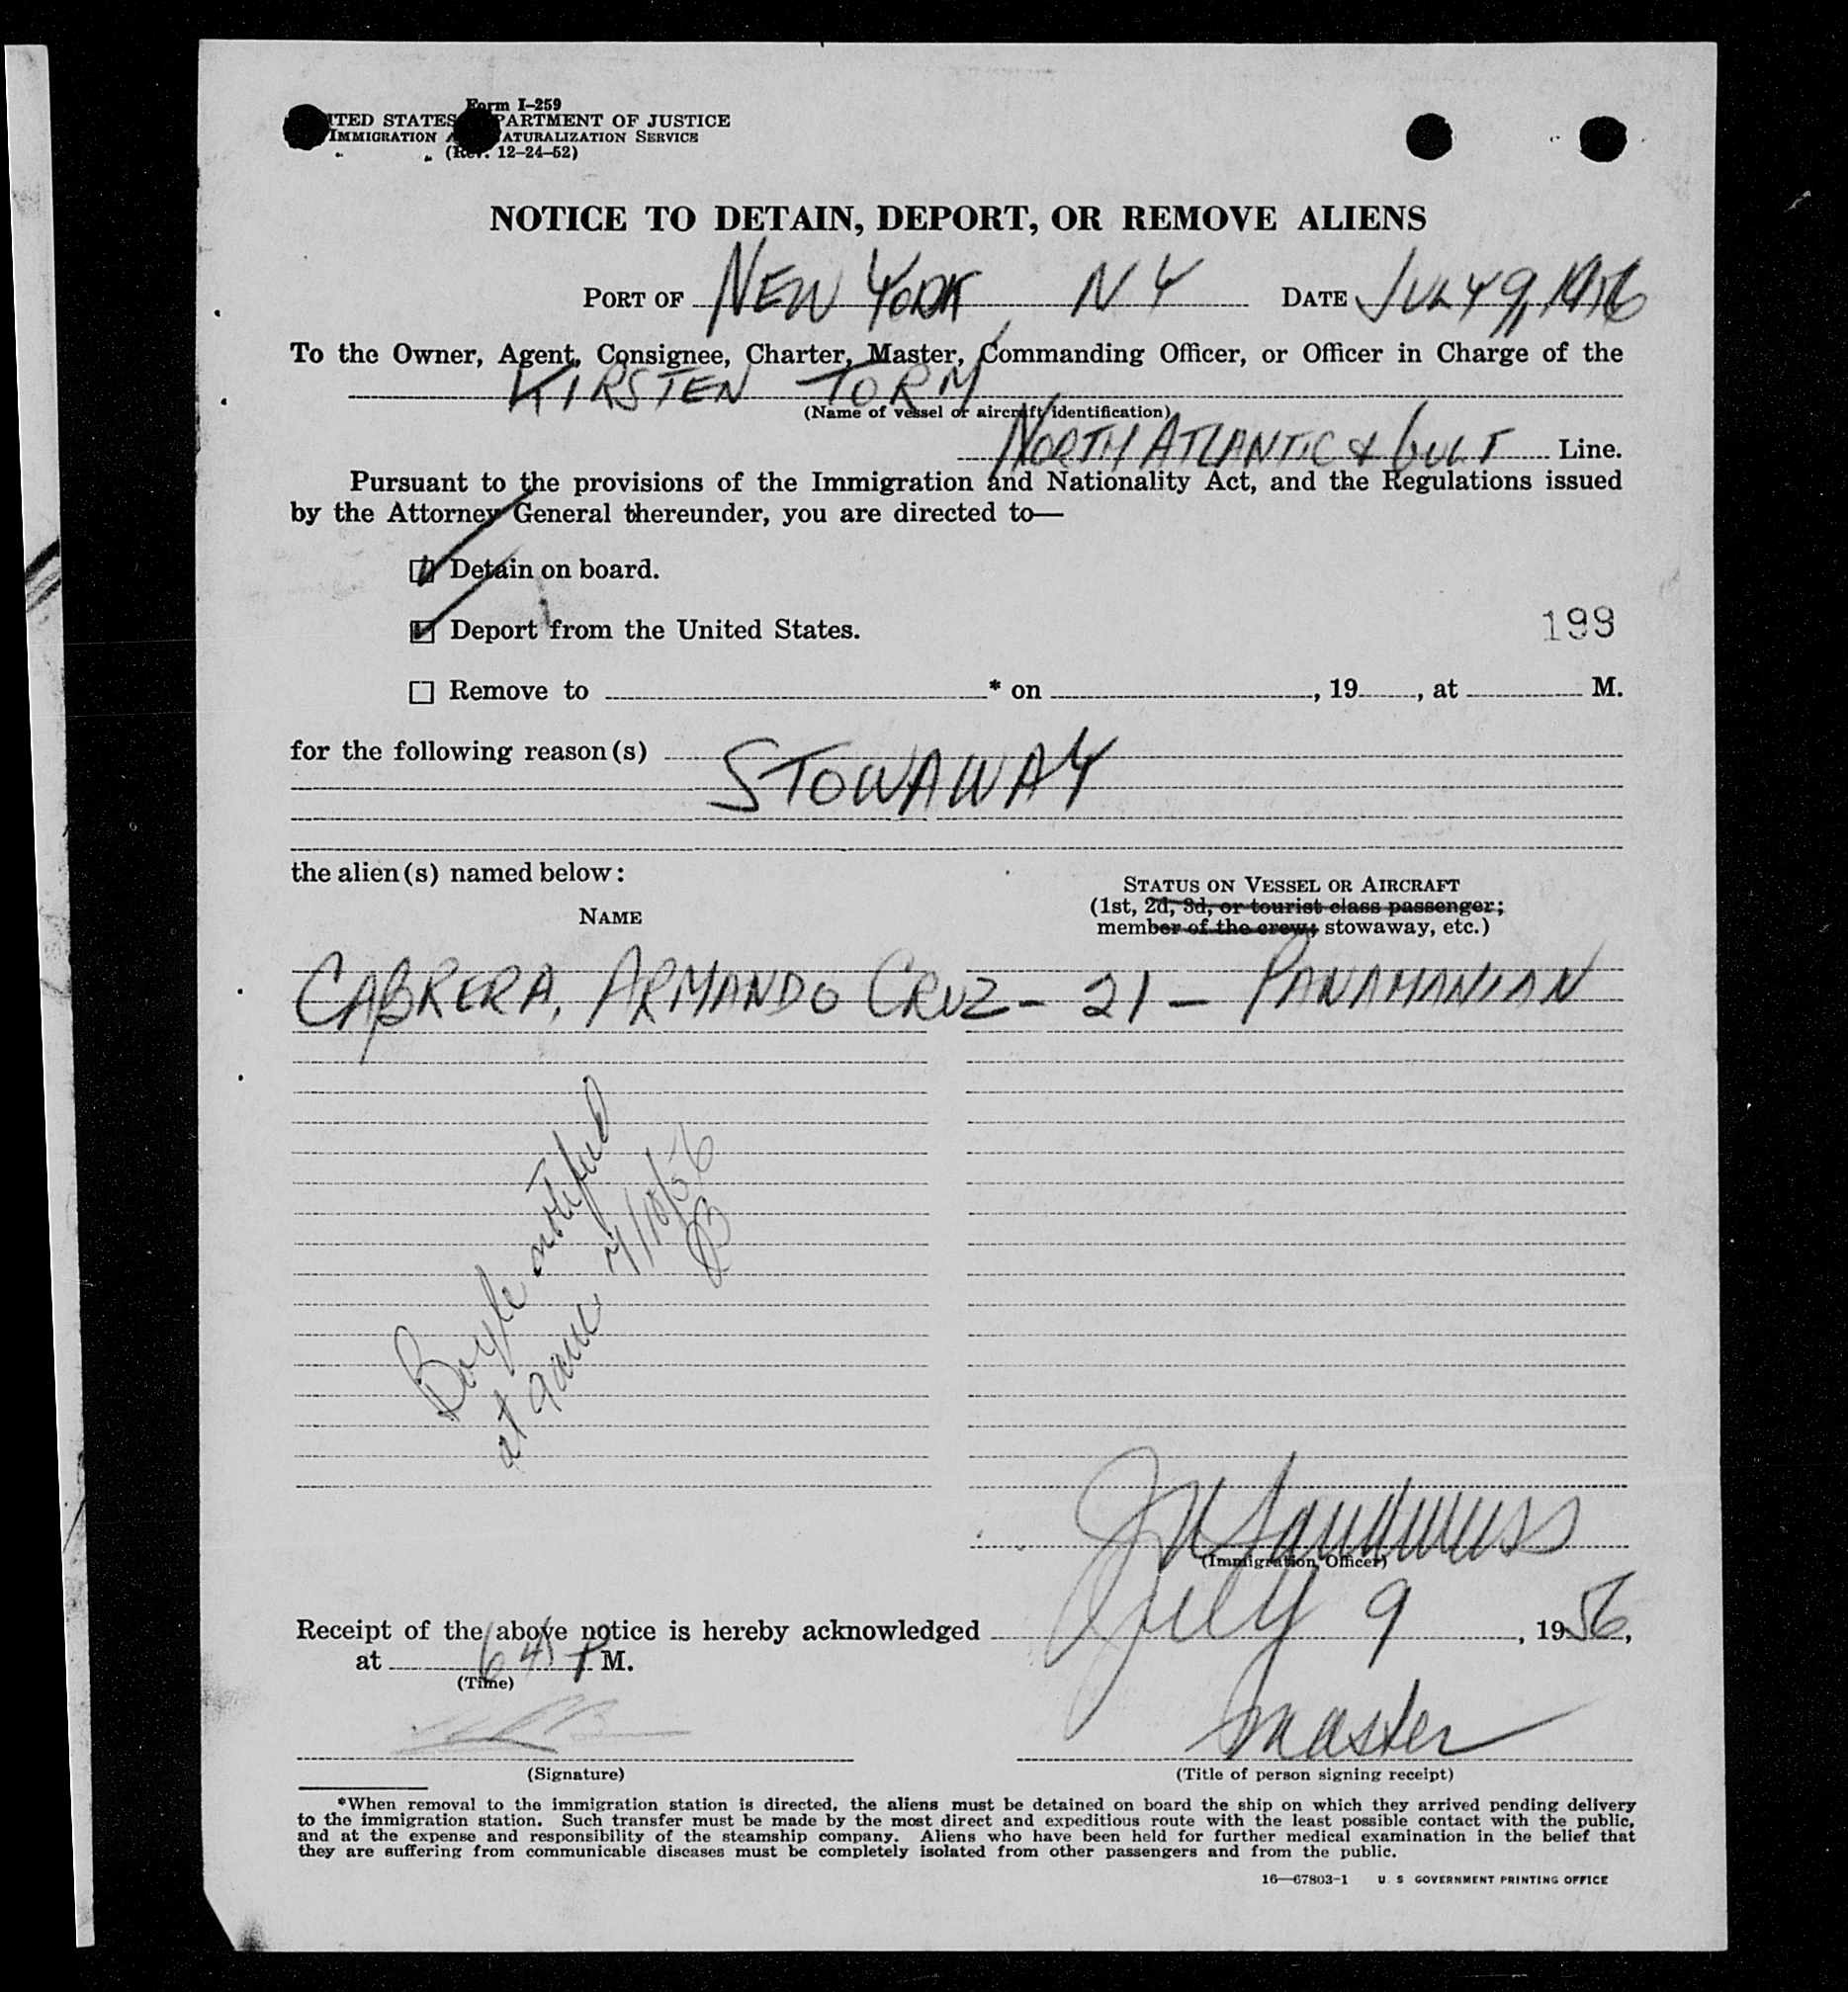 Form I-259
ITED STATES PARTMENT OF JUSTICE
IMMIGRATION A ATURALIZATION SERVICE
(Rev. 12-24-52)
NOTICE TO DETAIN, DEPORT, OR REMOVE ALIENS
PORT OF NEW YORK NY DATE JULY 9, 1956
To the Owner, Agent, Consignee, Charter, Master, Commanding Officer, or Officer in Charge of the
KIRSTEN TORM
(Name of vessel or aircraft identification)
NORTH ATLANTIC & GULF Line.
Pursuant to the provisions of the Immigration and Nationality Act, and the Regulations issued
by the Attorney General thereunder, you are directed to—
Detain on board.
Deport from the United States.
199
Remove to * on , 19 , at M.
for the following reason(s)
STOWAWAY
the alien(s) named below:
STATUS ON VESSEL OR AIRCRAFT
NAME
(1st, 2d, 3d, or tourist class passenger;
member of the crew; stowaway, etc.)
CABRERA, ARMANDO CRUZ - 21 - PANAMANIAN
Boyle notified
at 9am 7/10/56
(Immigration Officer)
Receipt of the above notice is hereby acknowledged July 9, 1956,
at 645 P M.
(Time)
Master
(Signature)
(Title of person signing receipt)
*When removal to the immigration station is directed, the aliens must be detained on board the ship on which they arrived pending delivery
to the immigration station. Such transfer must be made by the most direct and expeditious route with the least possible contact with the public,
and at the expense and responsibility of the steamship company. Aliens who have been held for further medical examination in the belief that
they are suffering from communicable diseases must be completely isolated from other passengers and from the public.
16—67803-1 U. S GOVERNMENT PRINTING OFFICE